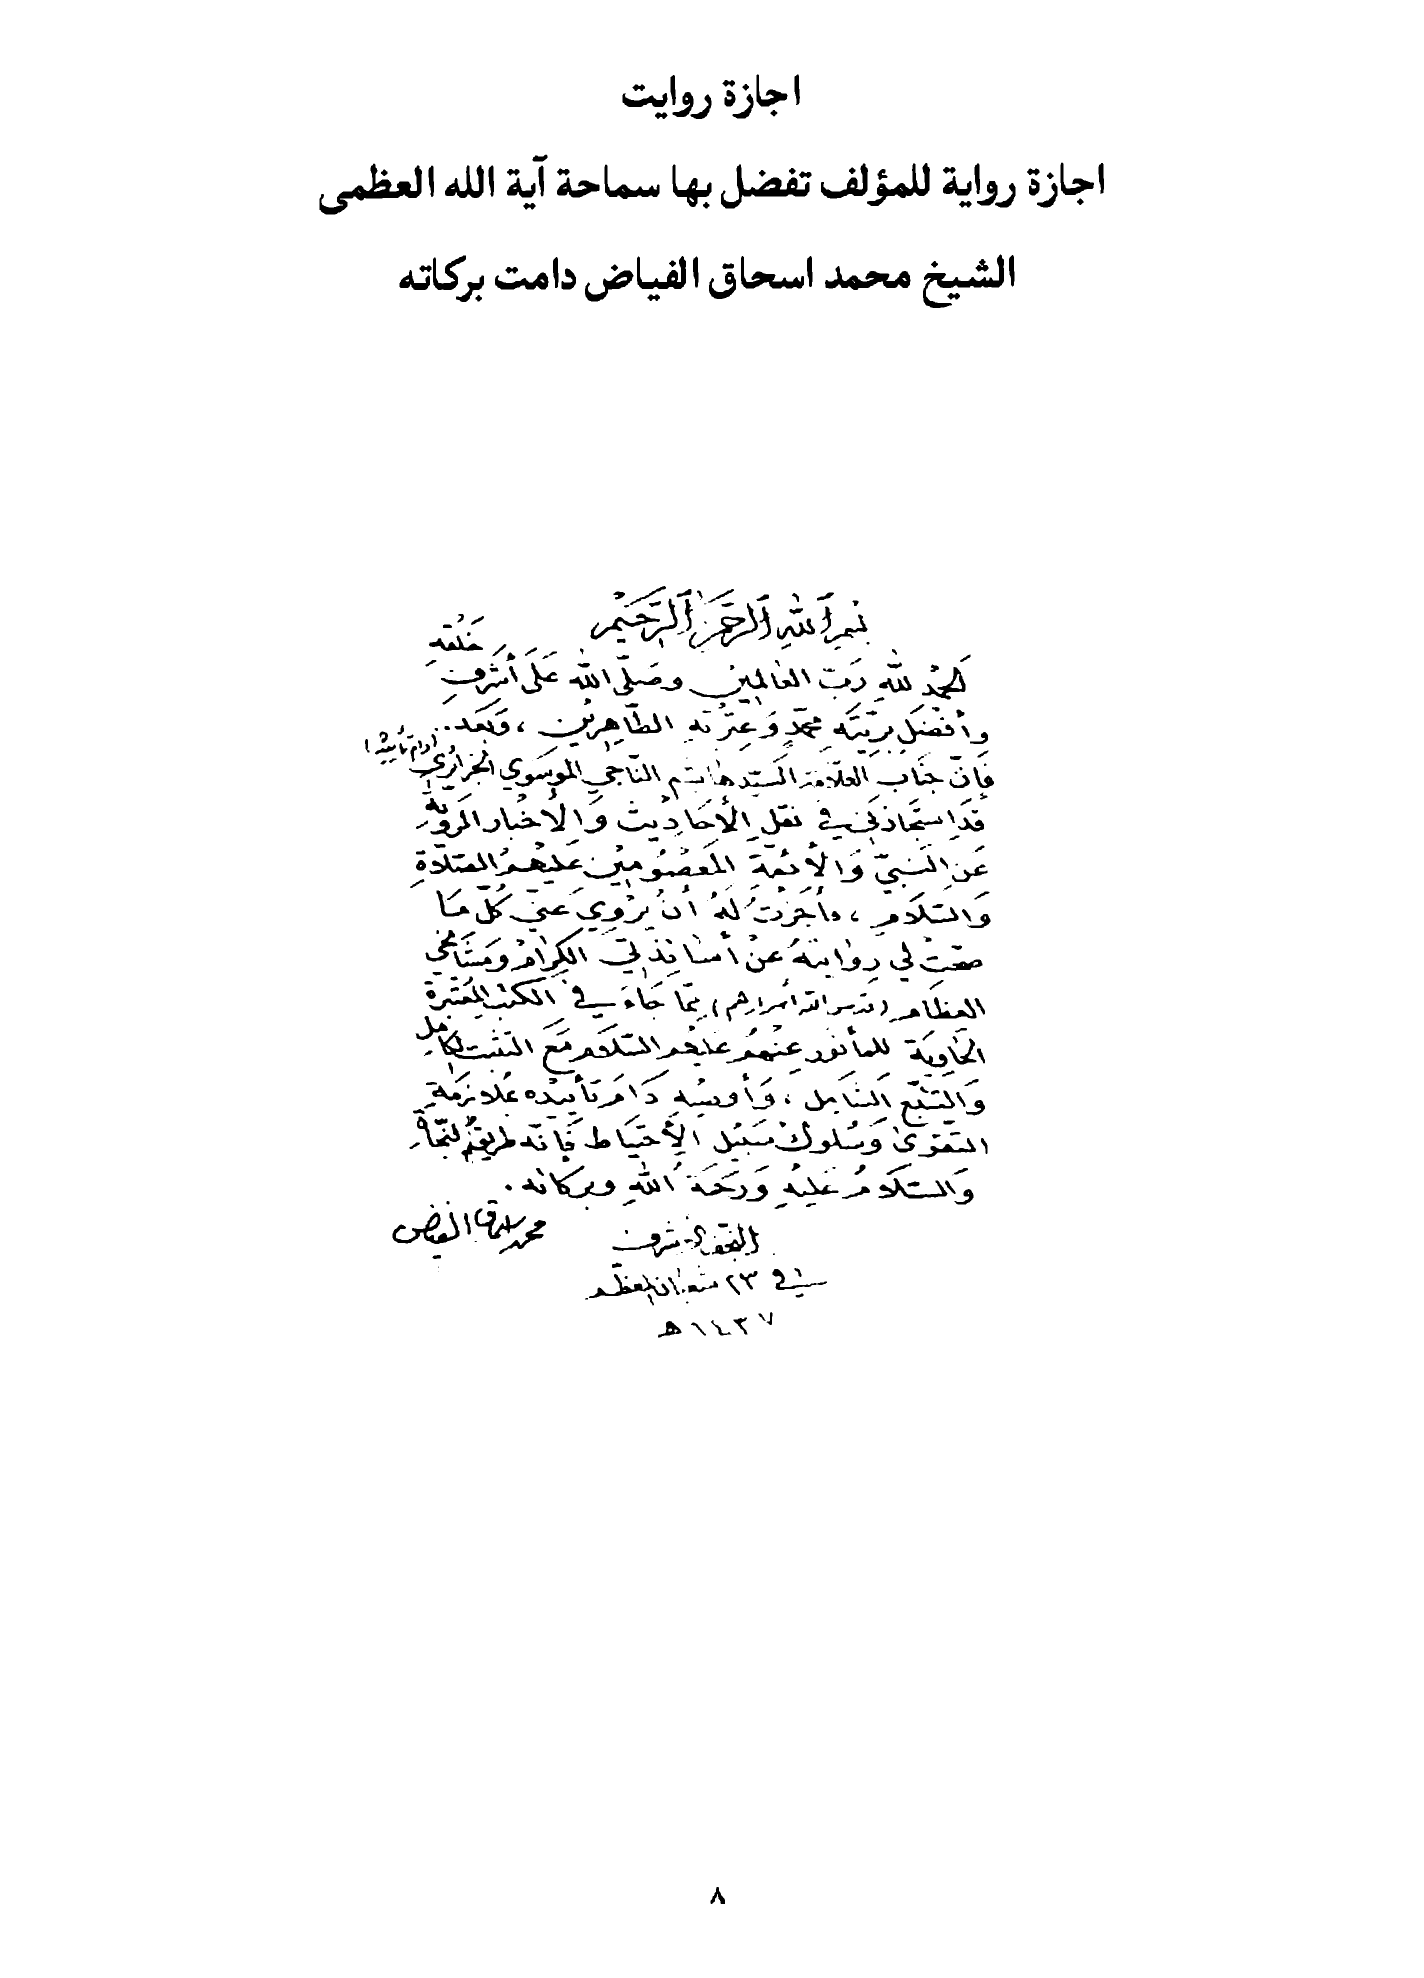 اجازة روايت
اجازة رواية للمؤلف تفضل بها سماحة آية الله العظمى
الشيخ محمد اسحاق الفياض دامت بركاته
بسم الله الرحمن الرحيم
الحمد لله رب العالمين وصلى الله على أشرف خلقه
وأفضل بريته محمد وعترته الطاهرين ، وبعد .
فإن جناب العلامة السيد هاشم الناجي الموسوي الجزائري (دام تأييده)
قد استجازني في نقل الأحاديث والأخبار المروية
عن النبي والأئمة المعصومين عليهم الصلاة
والسلام ، وأجزت له أن يروي عني كل ما
صحت لي روايته عن أساتذتي الكرام ومشايخي
العظام (قدس الله أسرارهم) مما جاء في الكتب المعتبرة
الحاوية للمأثور عنهم عليهم السلام مع التثبت الكامل
والتتبع الشامل ، وأوصيه دام تأييده بملازمة
التقوى وسلوك سبيل الاحتياط فإنه طريق النجاة
والسلام عليه ورحمة الله وبركاته .
محمد إسحاق الفياض
النجف الأشرف
في ٢٣ شعبان المعظم
١٤٣٧ هـ
٨